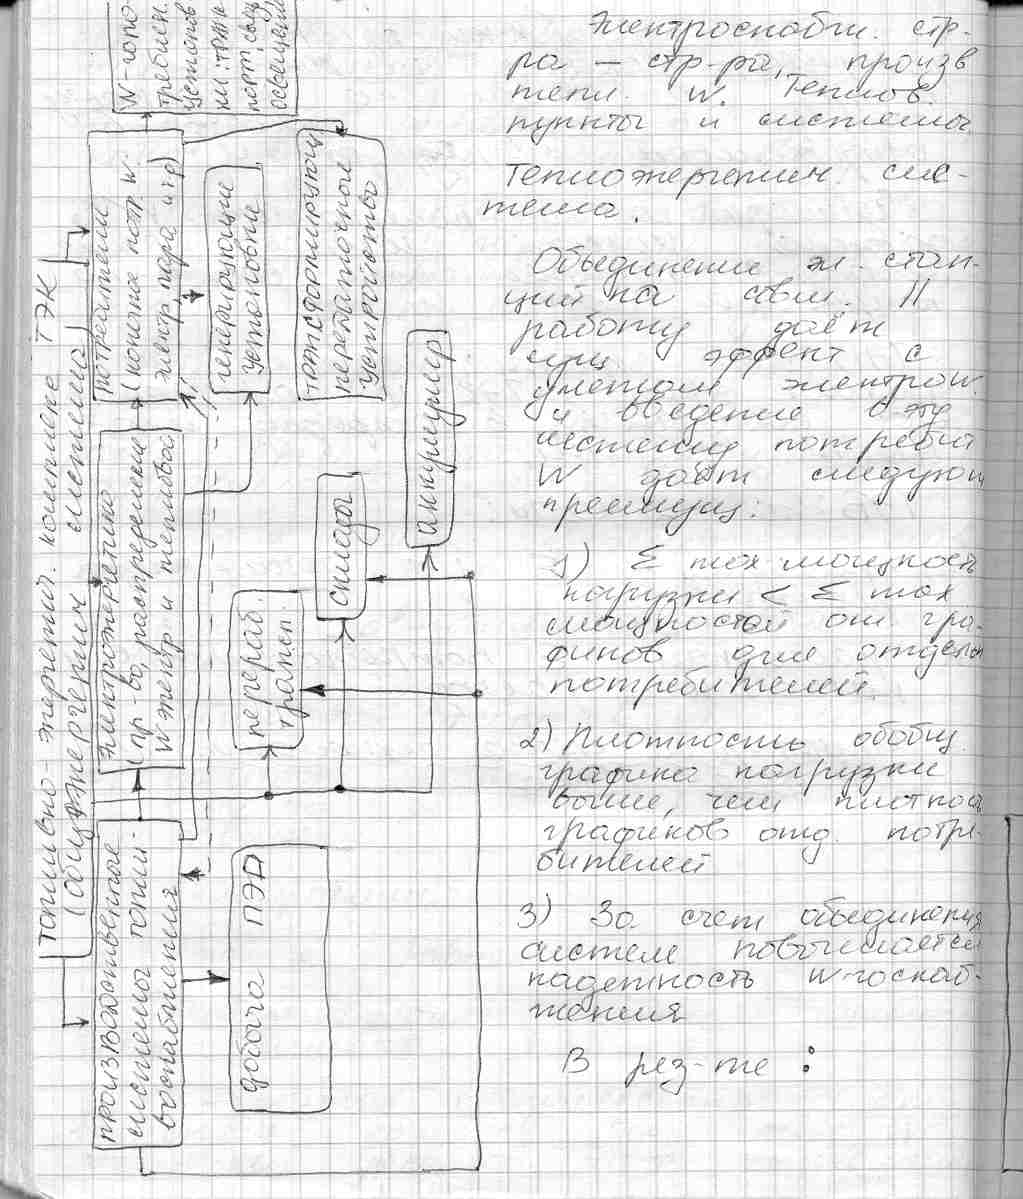 топливно-энергетич. комплекс ТЭК
(общ. энергетич. система)
производственные
системы топли-
воснабжения
электроэнергетика
(пр-во, распределение
W электр и тепловая
потребители
(конечное потр. W.
электр, пара, и гр)
W-гопо-
требляе.
установ
освещение
добыча ПЭР
перераб.
трансп.
склады
аккумулир
генерирующие
установки
трансформирующ
передаточное
устройство
Электроснабж. стр-
ра — стр-ра, произв
тепл. W. Теплов.
пункты и системы.
Теплоэнергетич. сис-
тема.
Объединение эл. стан-
ций на совм. ||
работу даёт
эффект с
учетом электроW.
и введение в эту
систему потребит
W даёт следующ
преимущ:
1) Σ max мощность
нагрузки < Σ max
мощностей от гра-
фиков для отдельн
потребителей.
2) Плотность обобщ.
графика нагрузки
выше, чем плотнос
графиков отд. потре-
бителей
3) За счет объединения
систем повышается
надежность W-госнаб-
жения
В рез-те :